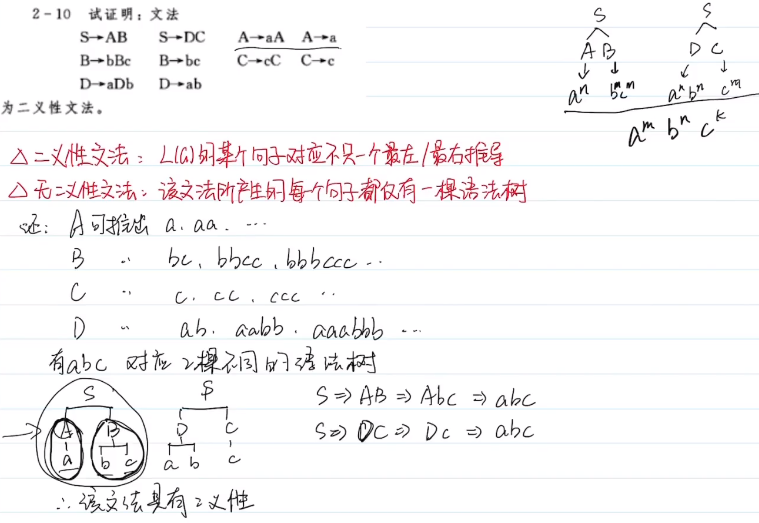 2-10 试证明：文法
S→AB S→DC A→aA A→a
B→bBc B→bc C→cC C→c
D→aDb D→ab
为二义性文法。
S S
A B D C
aⁿ bᵐcᵐ aⁿbⁿ cᵐ
aᵐ bⁿ cᵏ
△二义性文法：L(G)的某个句子对应不只一个最左/最右推导
△无二义性文法：该文法所产生的每个句子都仅有一棵语法树
证：A可推出 a、aa、…
B 〃 bc、bbcc、bbbccc…
C 〃 c、cc、ccc …
D 〃 ab、aabb、aaabbb …
有abc 对应2棵不同的语法树
S S S⇒AB⇒Abc⇒abc
A B D C S⇒DC⇒Dc⇒abc
a b c a b c
∴该文法具有二义性